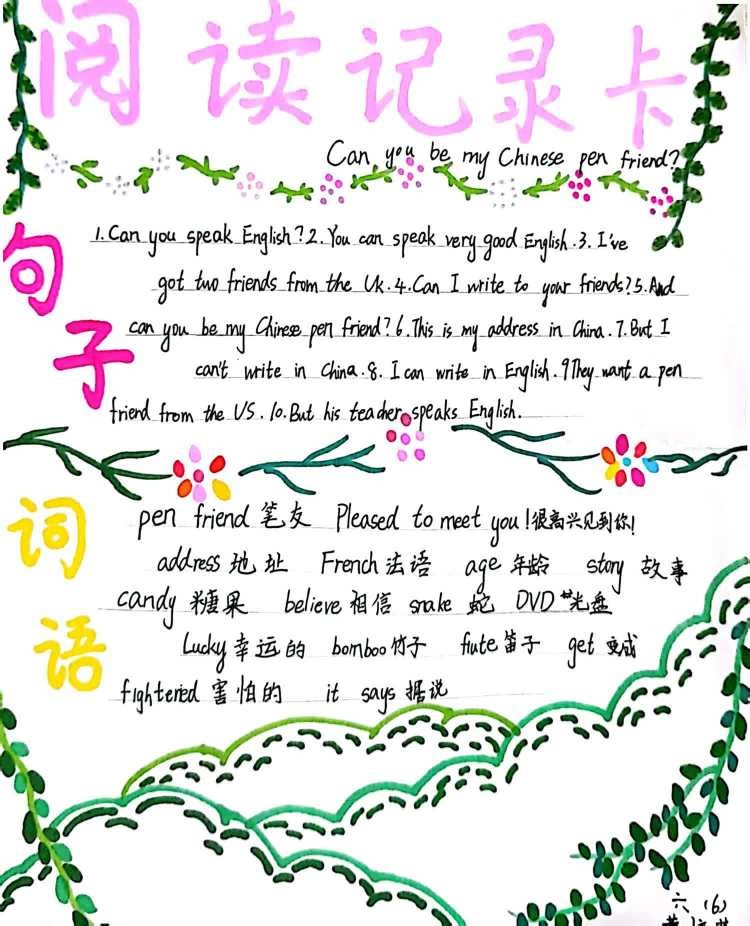 阅读记录卡
Can you be my Chinese pen friend?
句子
1.Can you speak English?2.You can speak very good English.3.I've
got two friends from the Uk.4.Can I write to your friends?5.And
can you be my Chinese pen friend?6.This is my address in China.7.But I
can't write in China.8.I can write in English.9They want a pen
friend from the US.10.But his teacher speaks English.
词语
pen friend 笔友 Pleased to meet you!很高兴见到你!
address 地址 French 法语 age 年龄 story 故事
candy 糖果 believe 相信 snake 蛇 DVD 光盘
Lucky 幸运的 bomboo 竹子 fiute 笛子 get 变成
fightered 害怕的 it says 据说
六(6)